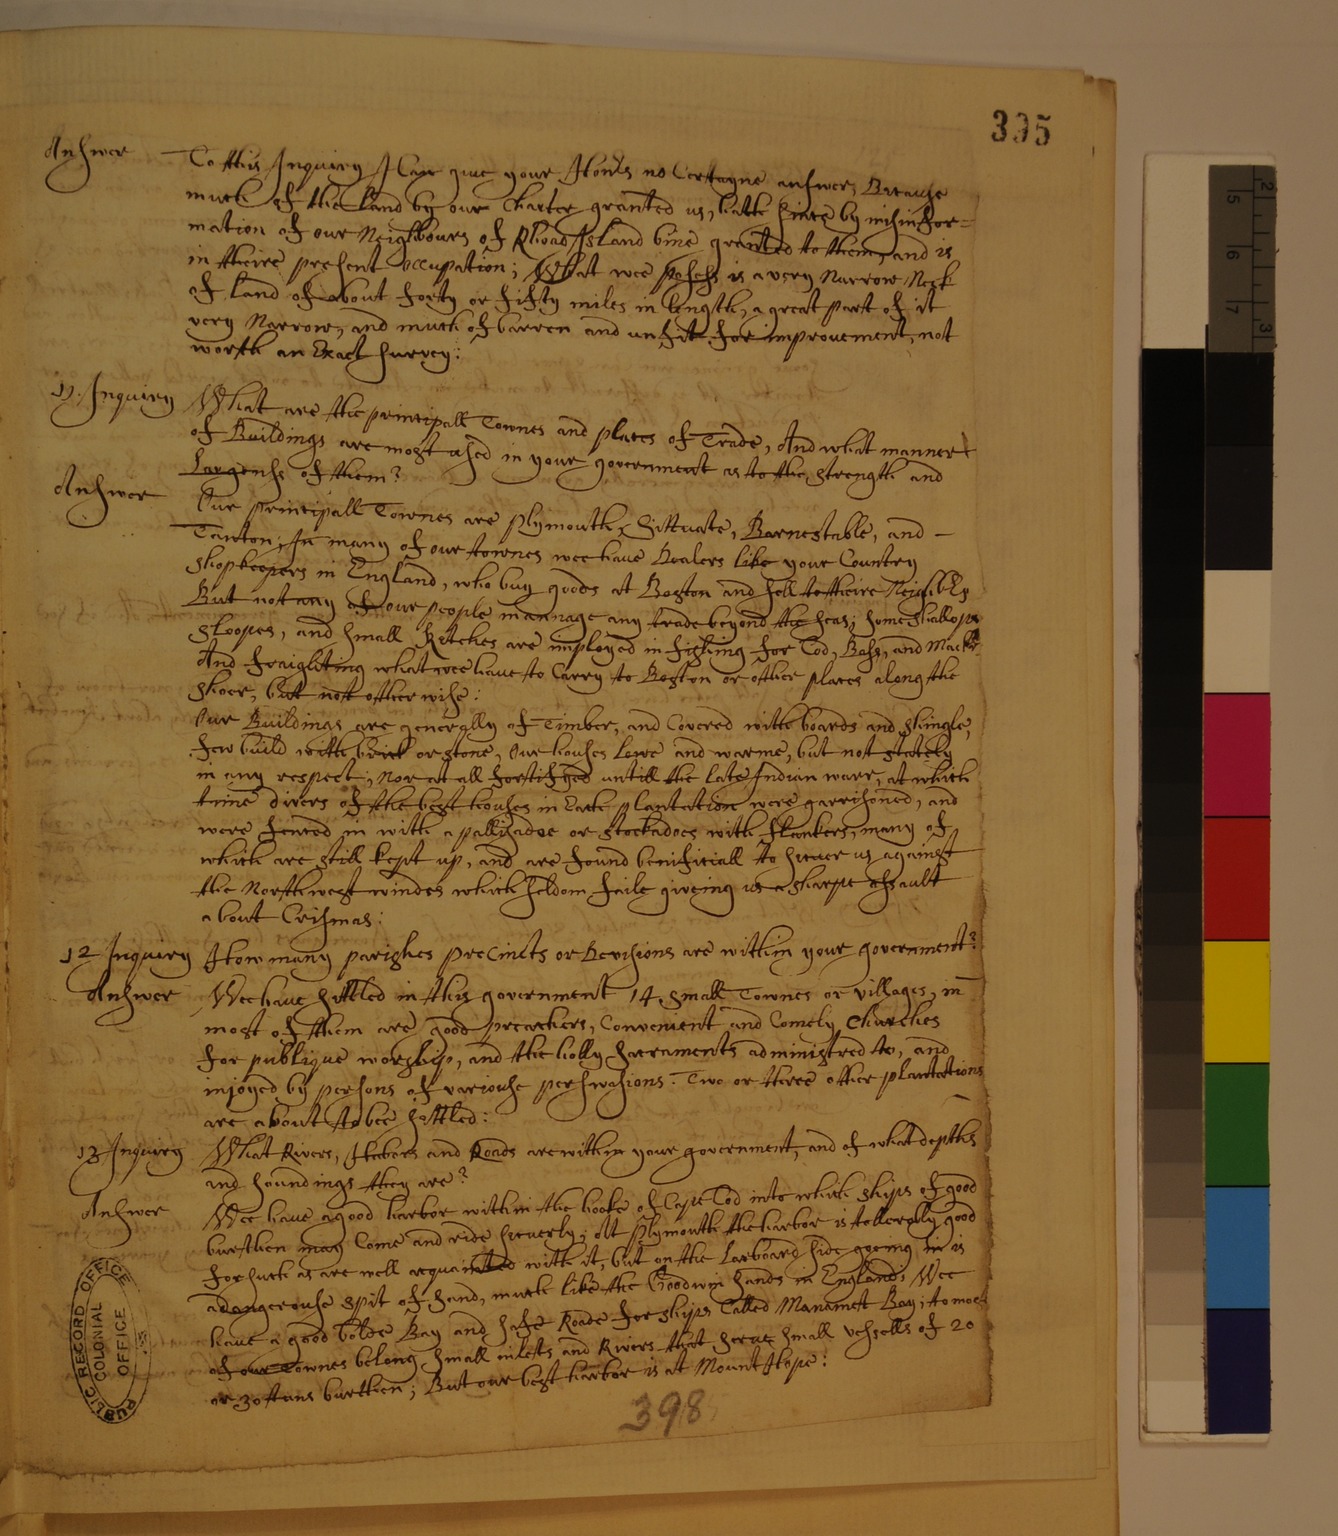 395
Answer To this Inquiry I Can give your Hon:rs no Certayne answer, Because
much of the Land by our Charter granted us, hath since by misinfor=
mation of our Neighbours of Rhoad Island bine granted to them, and is
in theire present occupation; What wee posess is a very Narrow Neck
of Land of about forty or fifty miles in length, a great part of it
very Narrow, and much of barren and unfit for improvement, not
worth an Exact survey:
11. Inquiry What are the principall Townes and places of Trade, And what manner
of Buildings are most used in your government as to the strength and
Largenes of them?
Answer Our principall Townes are plymouth, Sittuate, Barnestable, and —
Tanton; In many of our townes wee have Dealers like your Country
shopkeepers in England, who buy goods at Boston and sell to theire
But not any of our people mannage any trade beyond the seas; some shallopes
Sloopes, and small Ketches are imployed in fishing for Cod, Bass, and
And fraighting what wee have to Carry to Boston or other places along the
shoer, but not otherwise:
Our Buildings are generally of Timber, and Covered with boards and shingle,
few build with brick or stone, Our houses Lowe and warme, but not stately
in any respect; Nor at all fortifyed untill the late Indian warr, at which
time divers of the best houses in Each plantation were garrisoned, and
were fenced in with a pallizadoe or stockadoes with flankers, many of
which are still kept up, and are found benificiall to secuer us against
the Northwest windes which seldom faile giveing us a sharpe assault
about Crismas:
12 Inquiry How many parishes precincts or Devisions are within your government?
Answer Wee have settled in this government 14 small Townes or villages, in
most of them are good preachers, Convenient and Comely Churches
for publique worship, and the holly sacraments administred to, and
injoyed by persons of variouse perswasions. Two or three other plantations
are about to bee settled:
13 Inquiry What Rivers, Harbors and Roads are within your government, and of what depths
and soundings they are?
Answer Wee have a good harbor within the hooke of Cape Cod into which ships of good
burthen may Come and ride securly; At plymouth the harbor is tollerably good
for such as are well acquainted with it, but on the Larboard side goeing in is
a dangerouse spit of sand, much like the Goodwin sands in England, Wee
have a good bolde Bay and safe Roade for ships Called Manamet Bay; to most
of our Townes belong small inlets and Rivers that serve small vessells of 20
or 30 tuns burthen; But our best harbor is at Mount Hope:
398
PUBLIC RECORD OFFICE
COLONIAL
OFFICE